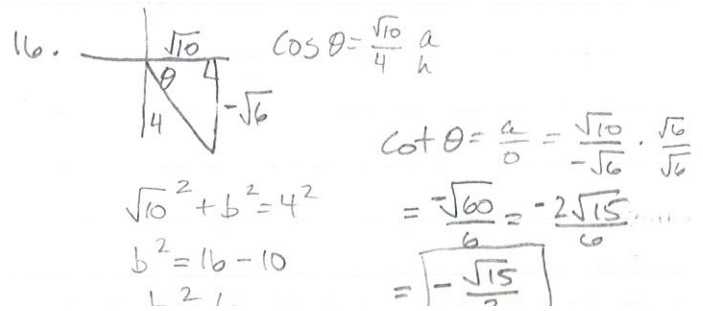 16.
√10
θ
4
-√6
cos θ = √10/4 a/h
cot θ = a/o = √10/-√6 · √6/√6
√10² + b² = 4²
= -√60/6 = -2√15/6
b² = 16 - 10
= -√15